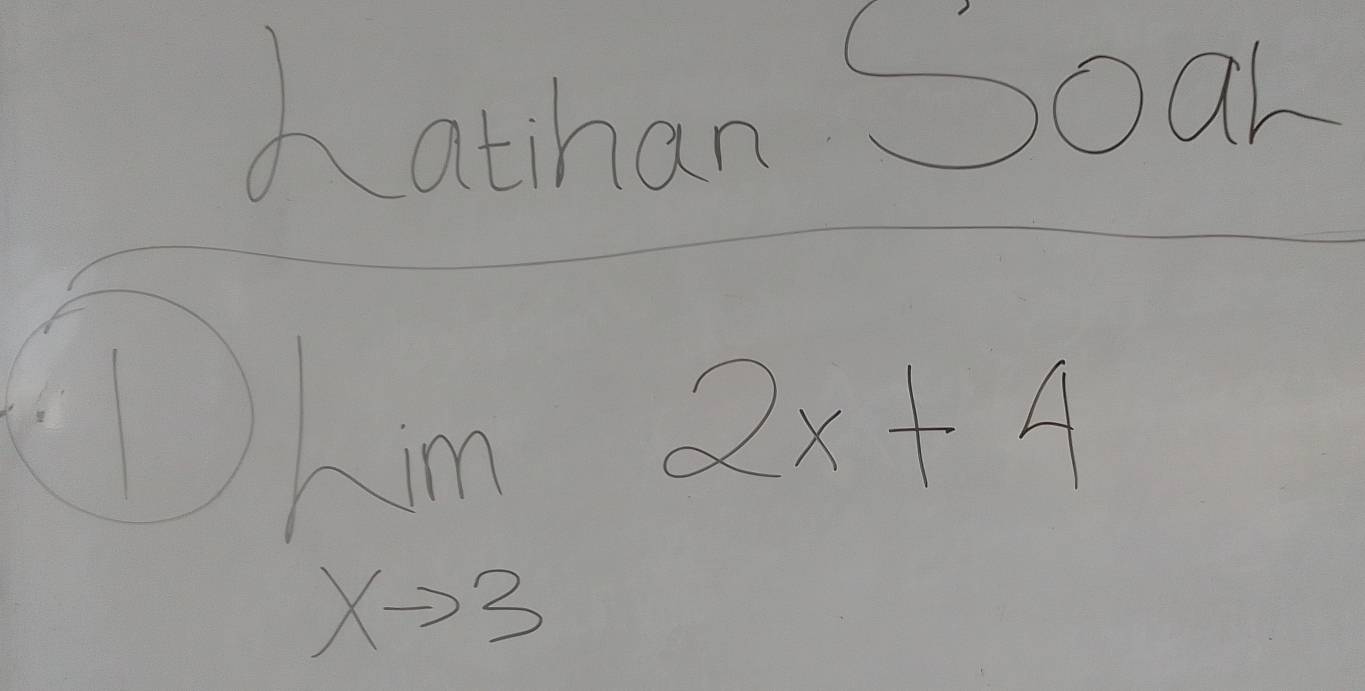 Latihan Soal
1 Lim 2x + 4
x→3